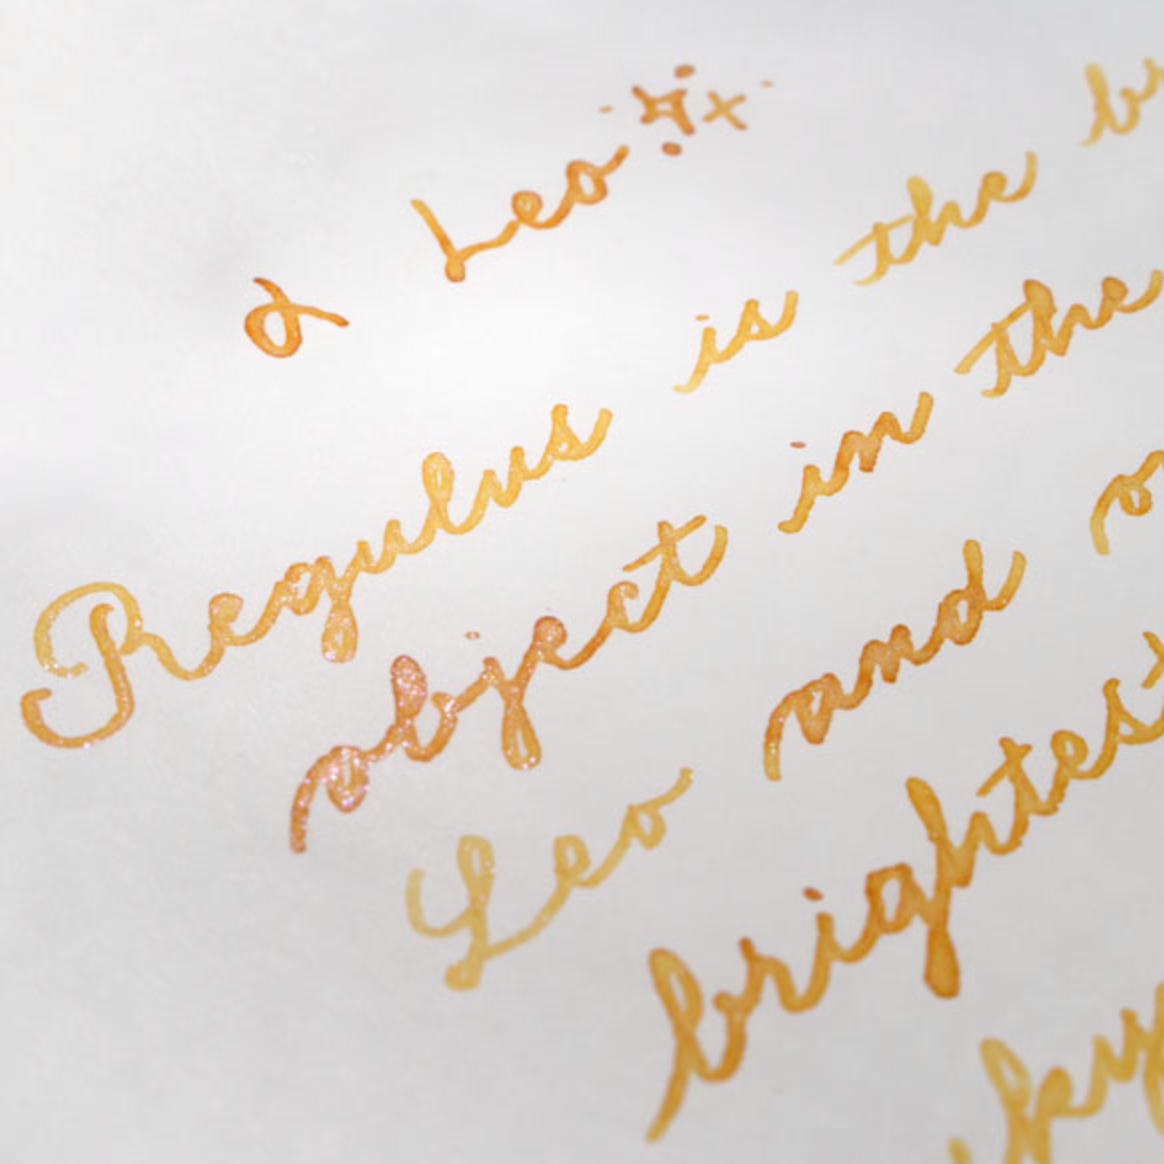 α Leo
Regulus is the
object in the
Leo and
brightest